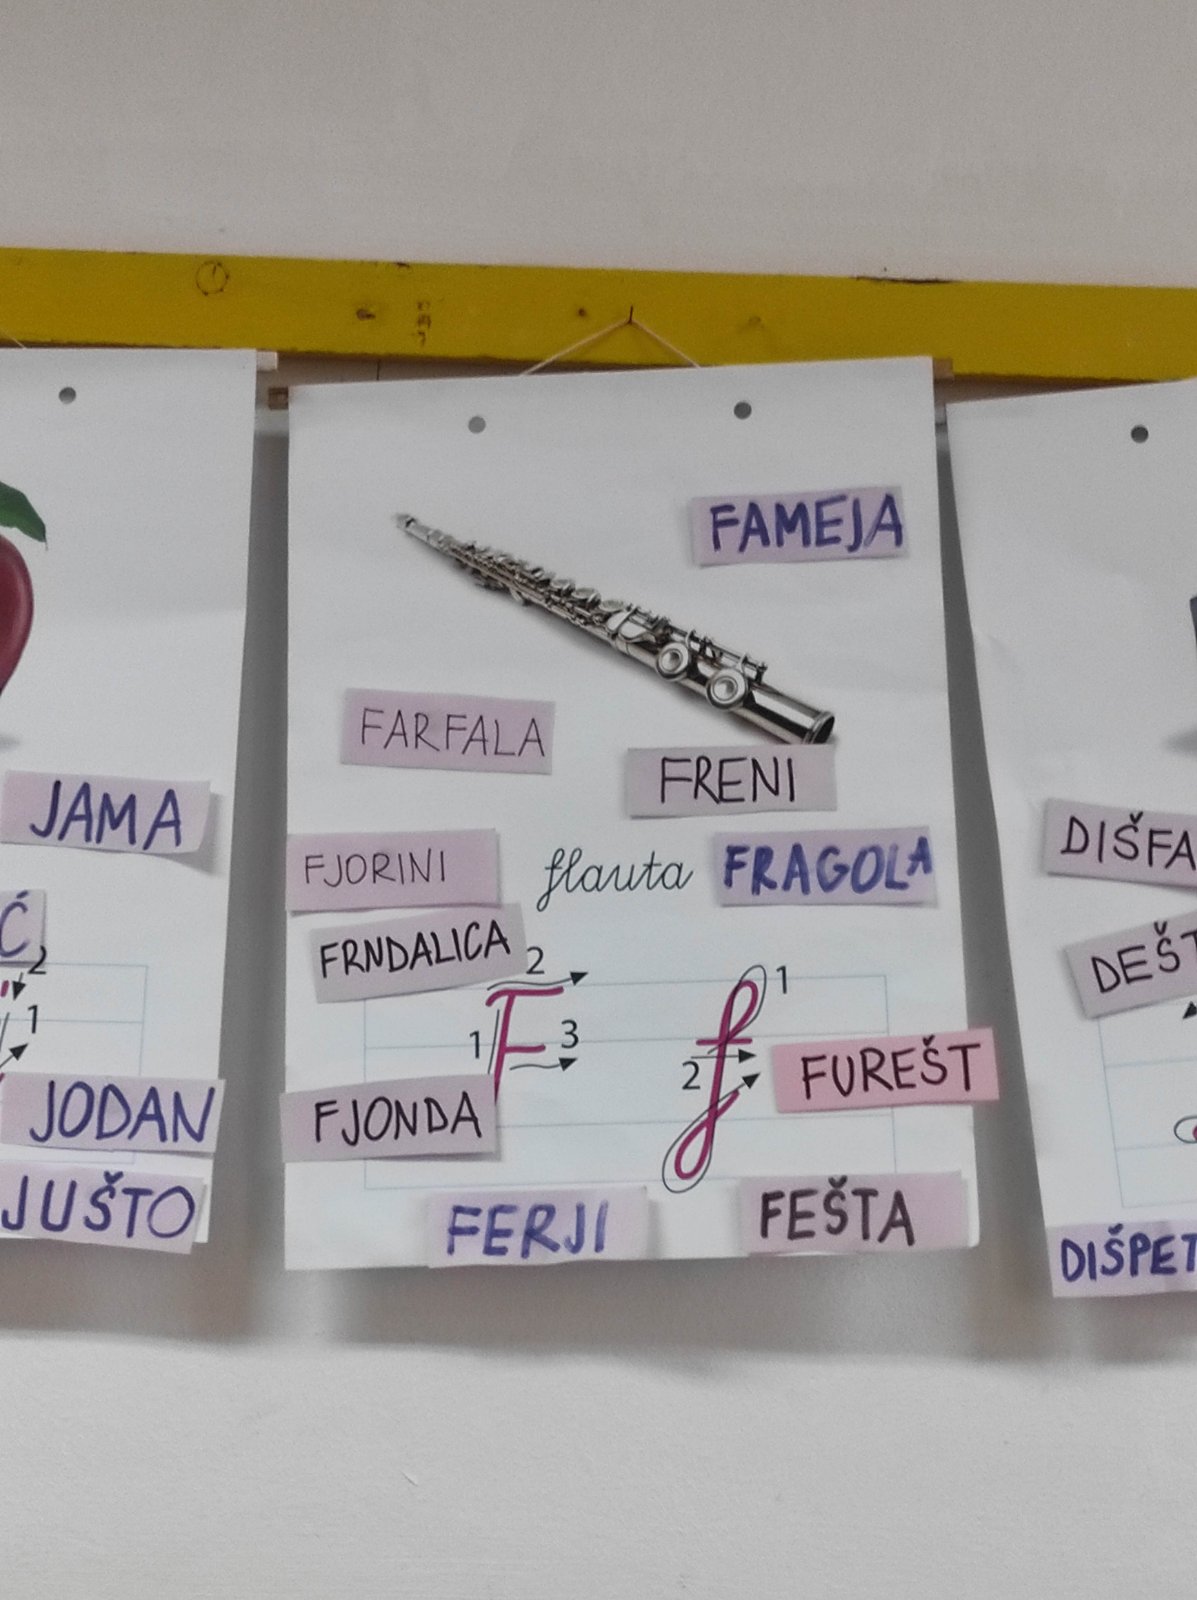 JAMA
Ć
2
1
JODAN
JUŠTO
FAMEJA
FARFALA
FRENI
FJORINI
flauta
FRAGOLA
FRNDALICA
2
1
3
1
2
FUREŠT
FJONDA
FERJI
FEŠTA
DIŠFA
DEŠT
DIŠPET